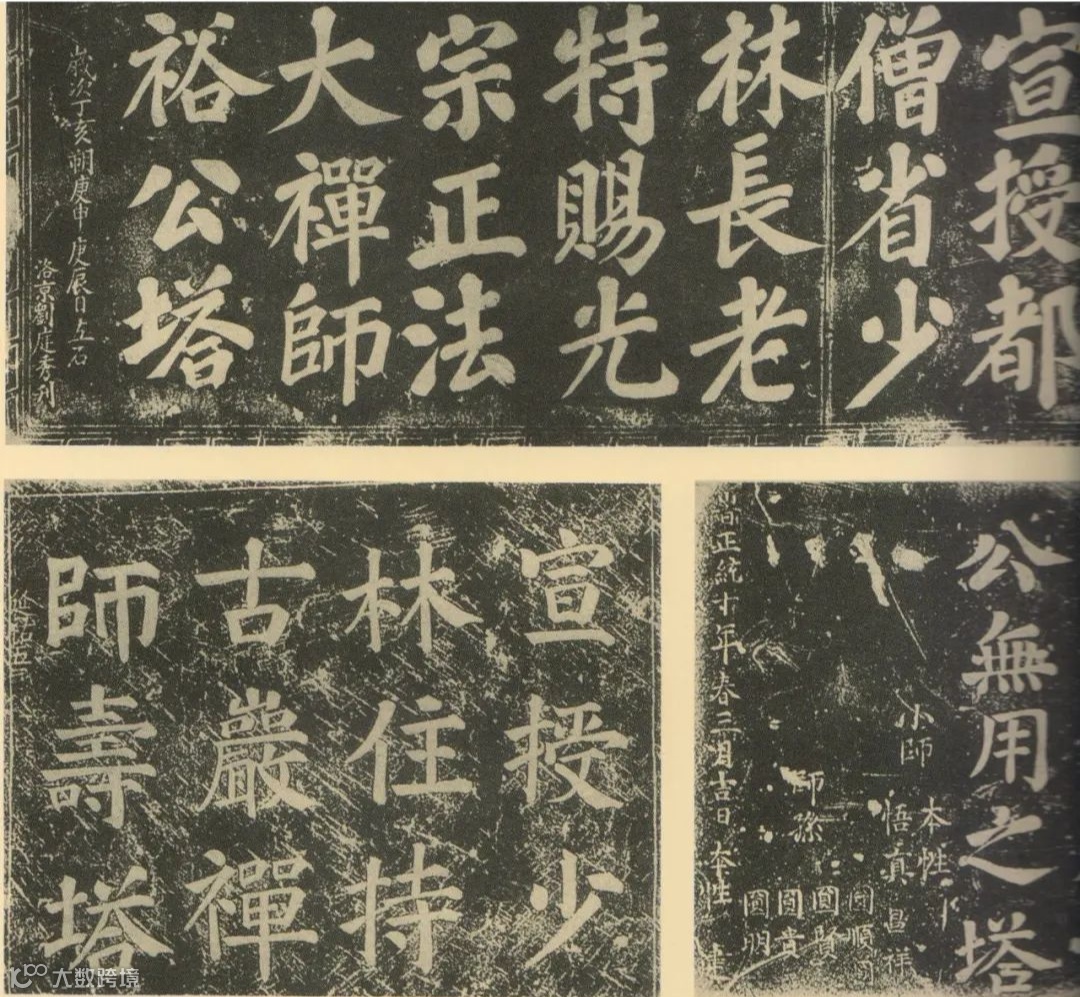 宣授都
僧省少
林長老
特賜光
宗正法
大禪師
裕公塔
歲次丁亥朔庚申庚辰日立石
洛京劉庭秀刊
宣授少
林住持
古巖禪
師壽塔
公無用之塔
小師
本性
悟真
昌祥
師孫
圓順
圓賢
圓貴
圓明
正統十年春三月吉日
本性
大数跨境